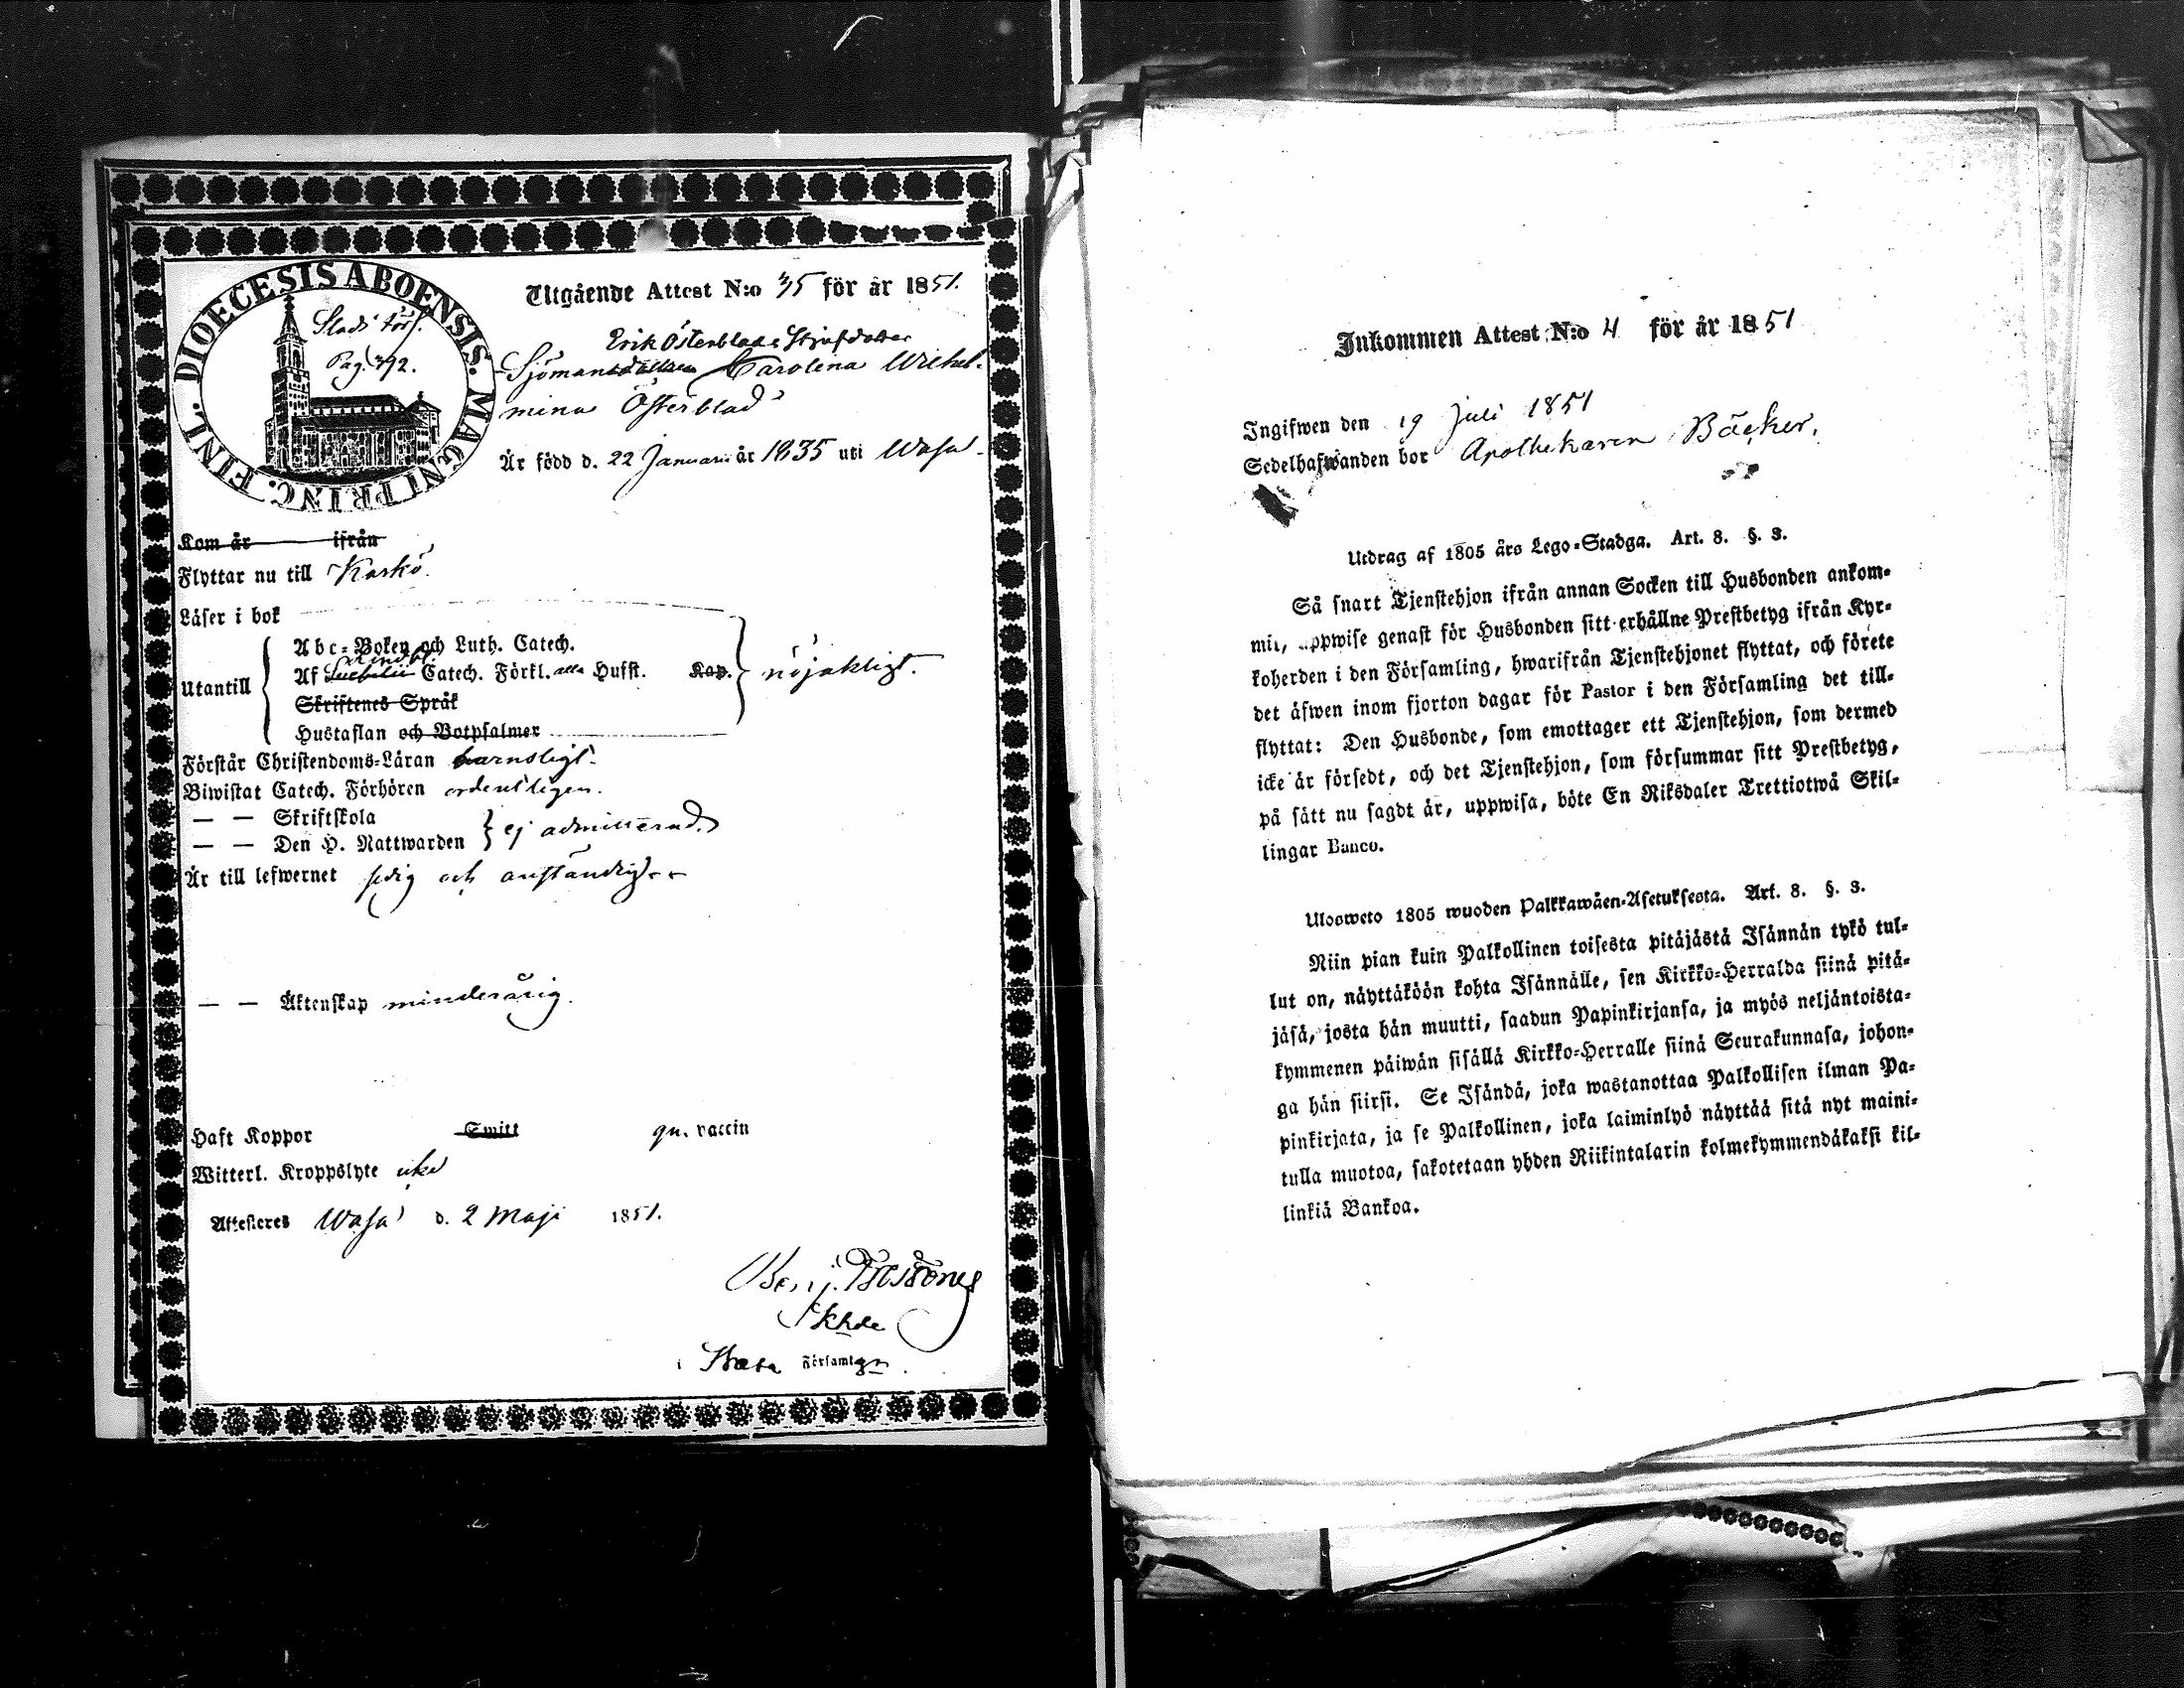 DIOECESIS ABOENSIS. MAGNI PRINC. FINL.
Stads förs.
Pag. 392.
Utgående Attest N:o 35 för år 1851.
Erik Österblads Styfdotter
Sjöman Carolina Wilhel-
mina Österblad
Är född d. 22 Januari år 1835 uti Wasa.
Kom år ifrån
Flyttar nu till Kaskö.
Läser i bok
Utantill
Abc-Boken och Luth. Catech.
Af Catech. Förkl. alla Hufst. Kap.
nöjaktligt.
Skriftenes Språk
Hustaflan och Botpsalmer
Förstår Christendoms-Läran barnsligt.
Biwistat Catech. Förhören ordentligen.
— — Skriftskola
— — Den H. Nattwarden
ej admitterad.
Är till lefwernet sedig och anständig
— — Äktenskap minderårig.
Haft Koppor Smitt gn. vaccin
Witterl. Kroppslyte utan
Attesteres Wasa d. 2 Maji 1851.
Benj.
Khde
i Wasa Församlgn.
Inkommen Attest N:o 4 för år 1851
Ingifwen den 19 Juli 1851
Sedelhafwanden bor Apothekaren Bäcker.
Utdrag af 1805 års Lego-Stadga. Art. 8. §. 3.
Så snart Tjenstehjon ifrån annan Socken till Husbonden ankom-
mit, uppwise genast för Husbonden sitt erhållne Prestbetyg ifrån Kyr-
koherden i den Församling, hwarifrån Tjenstehjonet flyttat, och förete
det äfwen inom fjorton dagar för Pastor i den Församling det till-
flyttat: Den Husbonde, som emottager ett Tjenstehjon, som dermed
icke är försedt, och det Tjenstehjon, som försummar sitt Prestbetyg,
på sätt nu sagdt är, uppwisa, böte En Riksdaler Trettiotwå Skil-
lingar Banco.
Ulosweto 1805 wuoden Palkkawäen-Asetuksesta. Art. 8. §. 3.
Niin pian kuin Palkollinen toisesta pitäjästä Isännän tykö tul-
lut on, näyttäköön kohta Isännälle, sen Kirkko-Herralda siinä pitä-
jäsä, josta hän muutti, saadun Papinkirjansa, ja myös neljäntoista-
kymmenen päiwän sisällä Kirkko-Herralle siinä Seurakunnasa, johon-
ga hän siirsi. Se Isändä, joka wastanottaa Palkollisen ilman Pa-
pinkirjata, ja se Palkollinen, joka laiminlyö näyttää sitä nyt maini-
tulla muotoa, sakotetaan yhden Riikintalarin kolmekymmendäkaksi kil-
linkiä Bankoa.